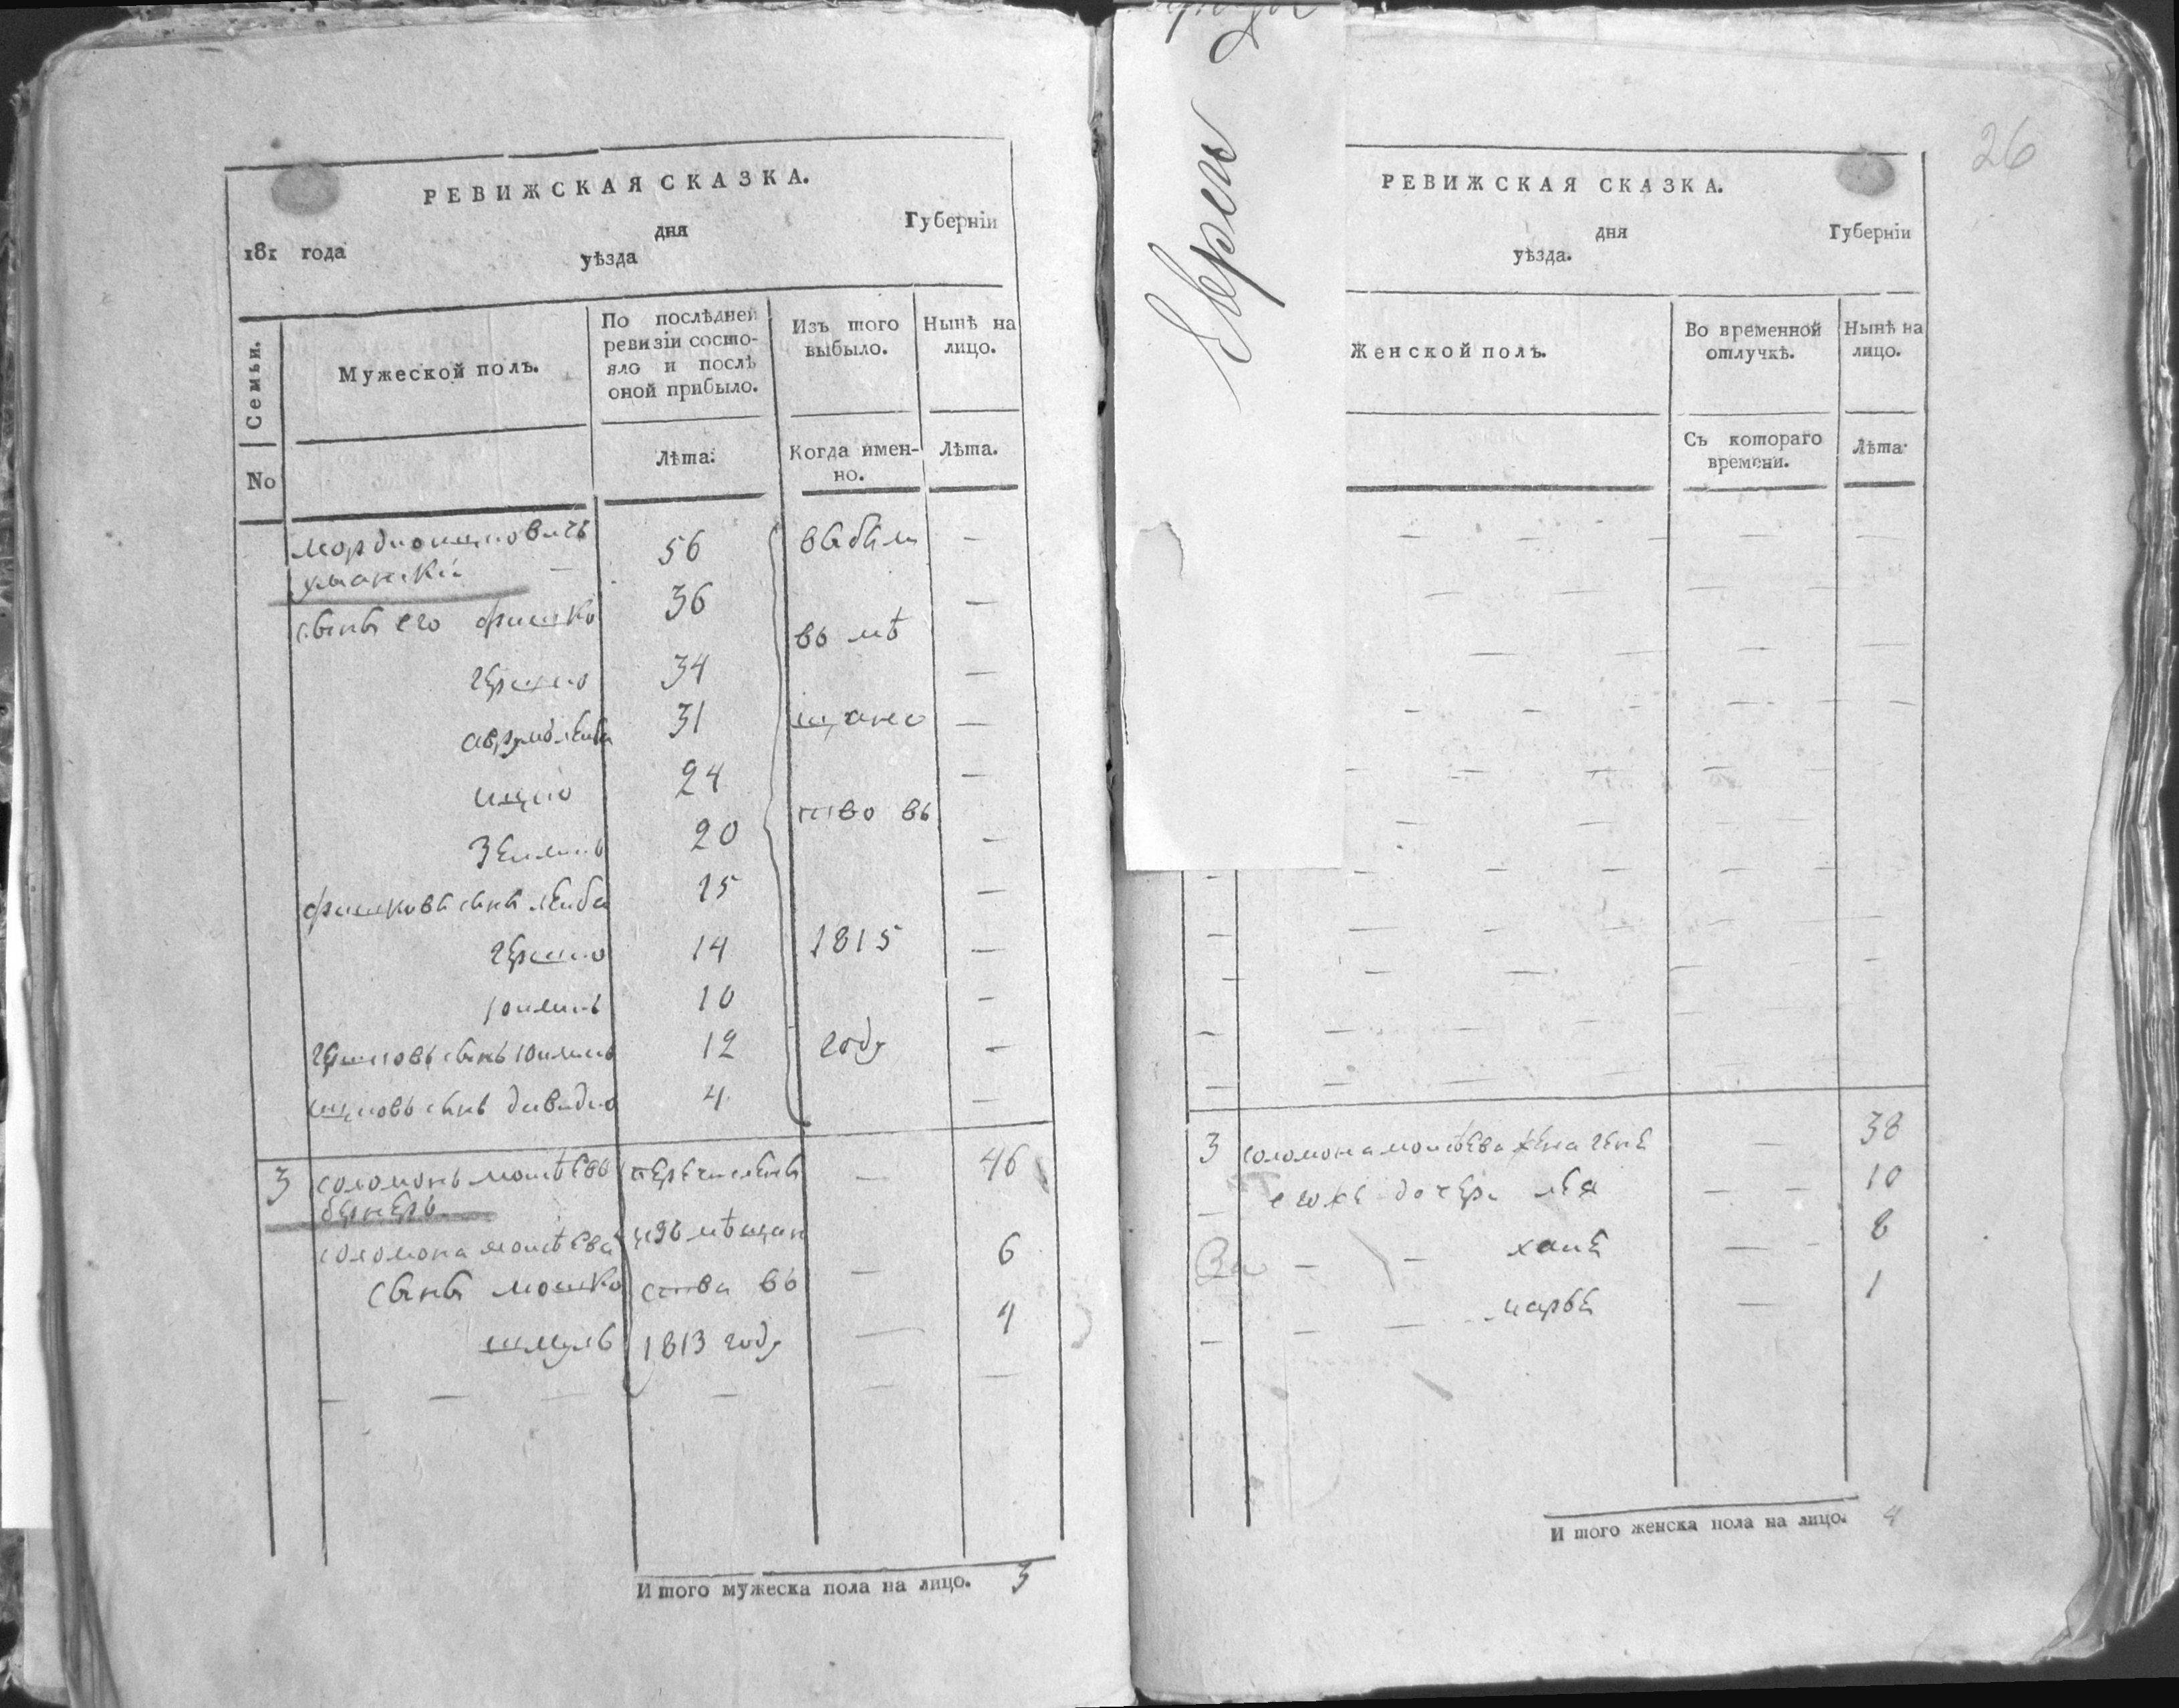 РЕВИЖСКАЯ СКАЗКА.
181 года дня Губерніи
уѣзда
Семьи.
Мужеской полъ.
По послѣдней ревизіи состояло и послѣ оной прибыло.
Изъ того выбыло.
Нынѣ на лицо.
No
Лѣта.
Когда именно.
Лѣта.
56 выбыли —
сынъ его фишко 36 —
въ мѣ
гершко 34 —
31 щанс —
ицко 24 —
20 ство въ —
фишковъ сынъ лейба 15 —
гершко 14 1815 —
10 —
гершковъ сынъ 12 году —
ицковъ сынъ давидко 4 —
3 соломонъ мошѣевъ перечисленъ — 46
бернеръ
соломона мошѣева изъ мѣщан 6
сынъ мошко ства въ —
шмуль 1813 году — 4
И того мужеска пола на лицо. 3
Евреи
26
РЕВИЖСКАЯ СКАЗКА.
дня Губерніи
уѣзда.
Женской полъ.
Во временной отлучкѣ.
Нынѣ на лицо.
Съ котораго времени.
Лѣта
3 соломона мошѣева жена гене — 38
его же дочери лея — — 10
— — хане — 8
— — — марье — 1
И того женска пола на лицо. 4